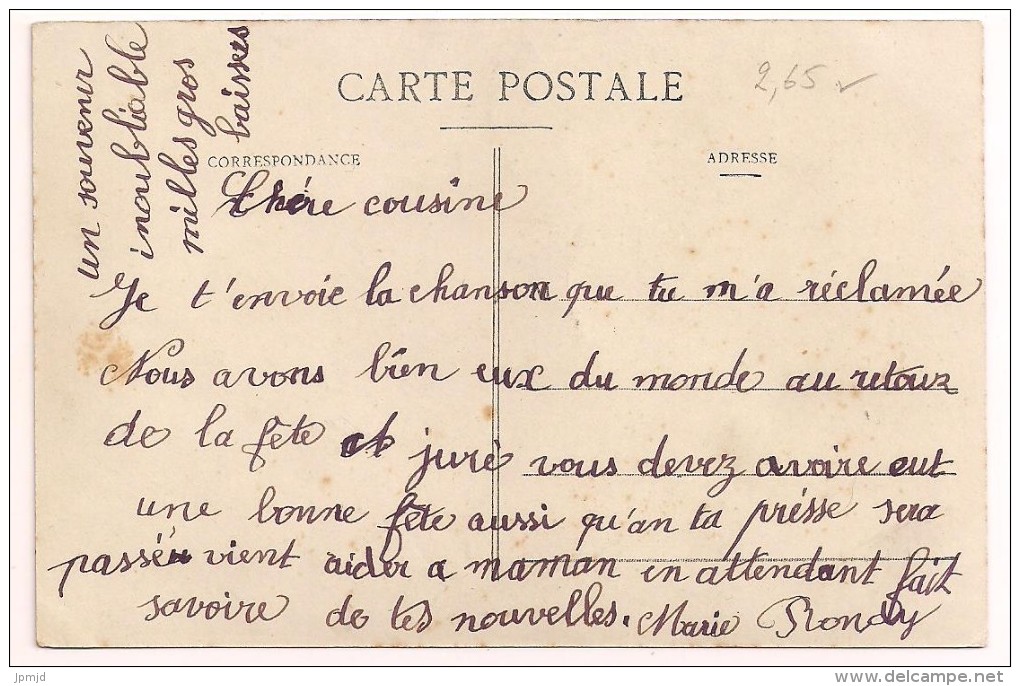 CARTE POSTALE
2,65
CORRESPONDANCE
ADRESSE
Chére cousine
Je t'envoie la chanson que tu m'a réclamée
Nous avons bien eux du monde au retour
de la fête et juré vous devez avoire eut
une bonne fête aussi qu'an ta présse sera
passée vient aider a maman en attendant fait
savoire de tes nouvelles. Marie Rondy
un souvenir
inoubliable
milles gros
baisses
jpmjd
www.delcampe.net